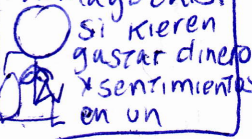 si kieren
gastar dinero
x sentimientos
en un